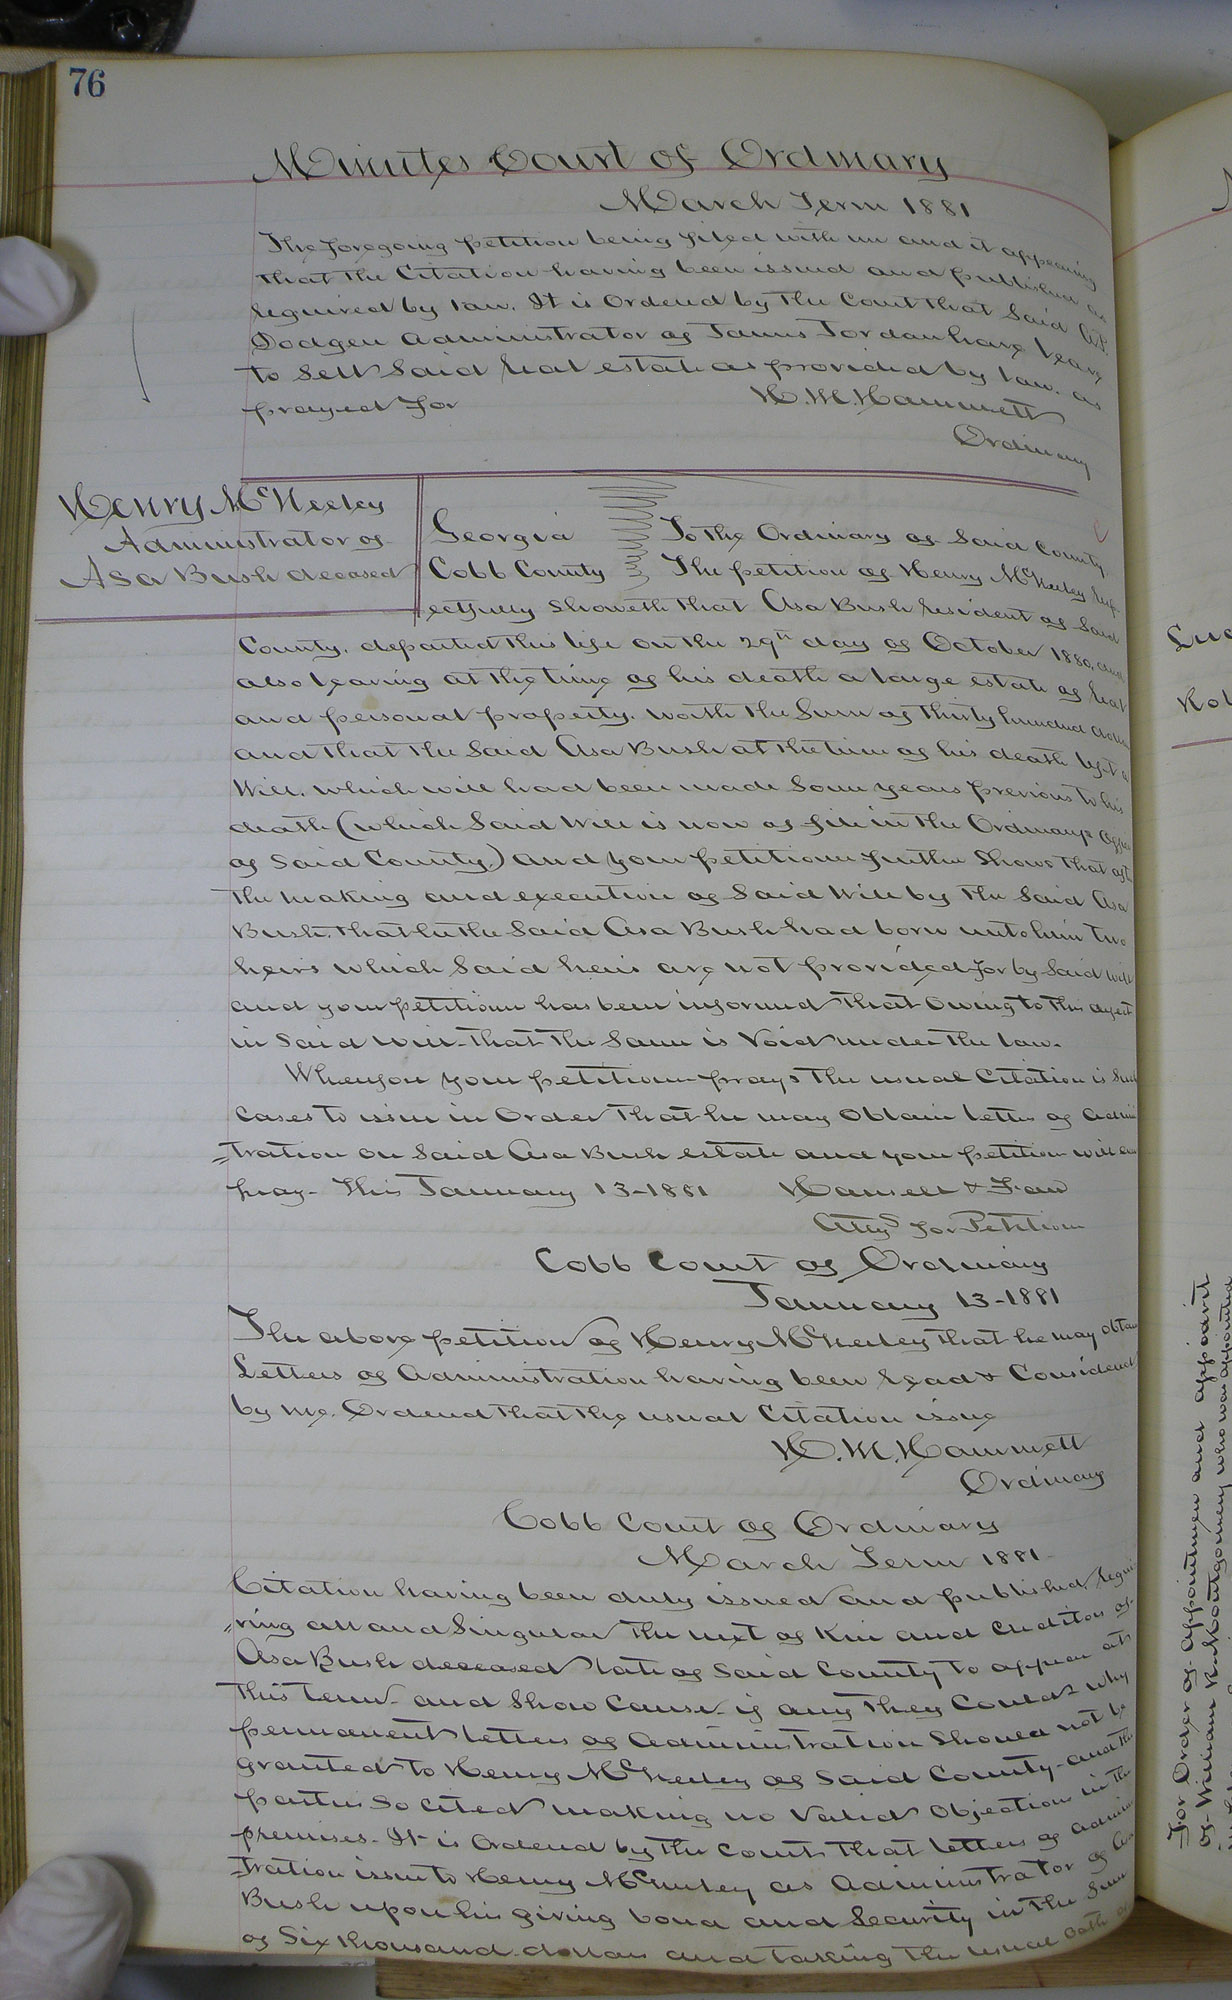 76
Minutes Court of Ordinary
March Term 1881
The foregoing petition being filed with me and it appearing
that the Citation having been issued and published as
required by law. It is Ordered by the Court that Said
Dodgen Administrator of James Jordan have leave
to Sell Said Real estate as provided by law. as
prayed for H. M. Hammett
Ordinary
Henry McNeeley
Administrator of
Asa Bush deceased
Georgia To the Ordinary of Said County.
Cobb County The petition of Henry McNeeley Resp-
ectfully Showeth that Asa Bush Resident of Said
County, departed this life on the 29th day of October 1880, and
also leaving at the time of his death a large estate of Real
and personal property. worth the Sum of Thirty hundred
and that the Said Asa Bush at the time of his death left a
Will, which will had been made Some years previous to his
death (which Said Will is now of file in the Ordinarys Office
of Said County.) and your petitioner further Shows that aft
the making and execution of Said Will by the Said Asa
Bush. that he the Said Asa Bush had born unto him two
heirs which Said heirs are not provided for by Said Will
and your petitioner has been informed that owing to this
in Said Will that the Same is Void under the law.
Wherefore your petitioner prays the usual Citation is Such
cases to issue in Order that he may Obtain letters of Admi
=tration on Said Asa Bush estate and your petition will
pray. This January 13-1881 Hansell & Faw
Attys for Petition
Cobb Court of Ordinary
January 13-1881
The above petition of Henry McNeeley that he may obtain
Letters of Administration having been Read & Considered
by me. Ordered that the usual Citation issue
H. M. Hammett
Ordinary
Cobb Court of Ordinary
March Term 1881
Citation having been duly issued and published requi
"ring all and Singular the next of Kin and Creditors of
Asa Bush deceased late of Said County to appear at
this term and Show Cause if any they Could why
permanent letters of Administration Should not be
granted to Henry McNeeley of Said County and the
parties So cited making no Valid Objection in the
premises. It is Ordered by the Court that letters of Admini
=tration issue to Henry McNeeley as Administrator of Asa
Bush upon his giving bond and Security in the Sum
of Six thousand dollars and taking the usual Oath
For Order of Appointmen and apparit
of William R Montgomery who was appointed